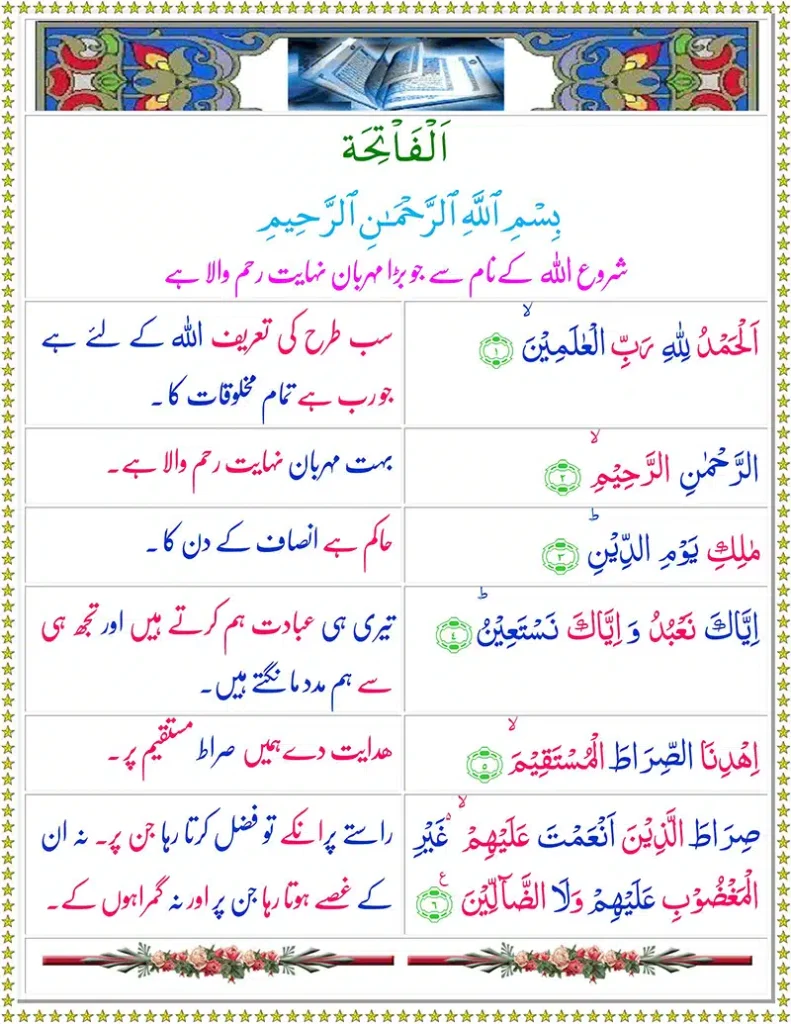 اَلْفَاتِحَة
بِسْمِ ٱللَّهِ ٱلرَّحْمَـٰنِ ٱلرَّحِيمِ
شروع اللہ کے نام سے جو بڑا مہربان نہایت رحم والا ہے
اَلْحَمْدُ لِلّٰهِ رَبِّ الْعٰلَمِيْنَ ۙ ﴿١﴾
سب طرح کی تعریف اللہ کے لئے ہے
جو رب ہے تمام مخلوقات کا ۔
الرَّحْمٰنِ الرَّحِيْمِ ۙ ﴿٢﴾
بہت مہربان نہایت رحم والا ہے ۔
مٰلِكِ يَوْمِ الدِّيْنِ ؕ ﴿٣﴾
حاکم ہے انصاف کے دن کا ۔
اِيَّاكَ نَعْبُدُ وَ اِيَّاكَ نَسْتَعِيْنُ ؕ ﴿٤﴾
تیری ہی عبادت ہم کرتے ہیں اور تجھ ہی
سے ہم مدد مانگتے ہیں ۔
اِهْدِنَا الصِّرَاطَ الْمُسْتَقِيْمَ ۙ ﴿٥﴾
ھدایت دے ہمیں صراط مستقیم پر ۔
صِرَاطَ الَّذِيْنَ اَنْعَمْتَ عَلَيْهِمْ ۙ۬ غَيْرِ
الْمَغْضُوْبِ عَلَيْهِمْ وَلَا الضَّآلِّيْنَ ﴿٦﴾ ع
راستے پر انکے تو فضل کرتا رہا جن پر ۔ نہ ان
کے غصے ہوتا رہا جن پر اور نہ گمراہوں کے ۔